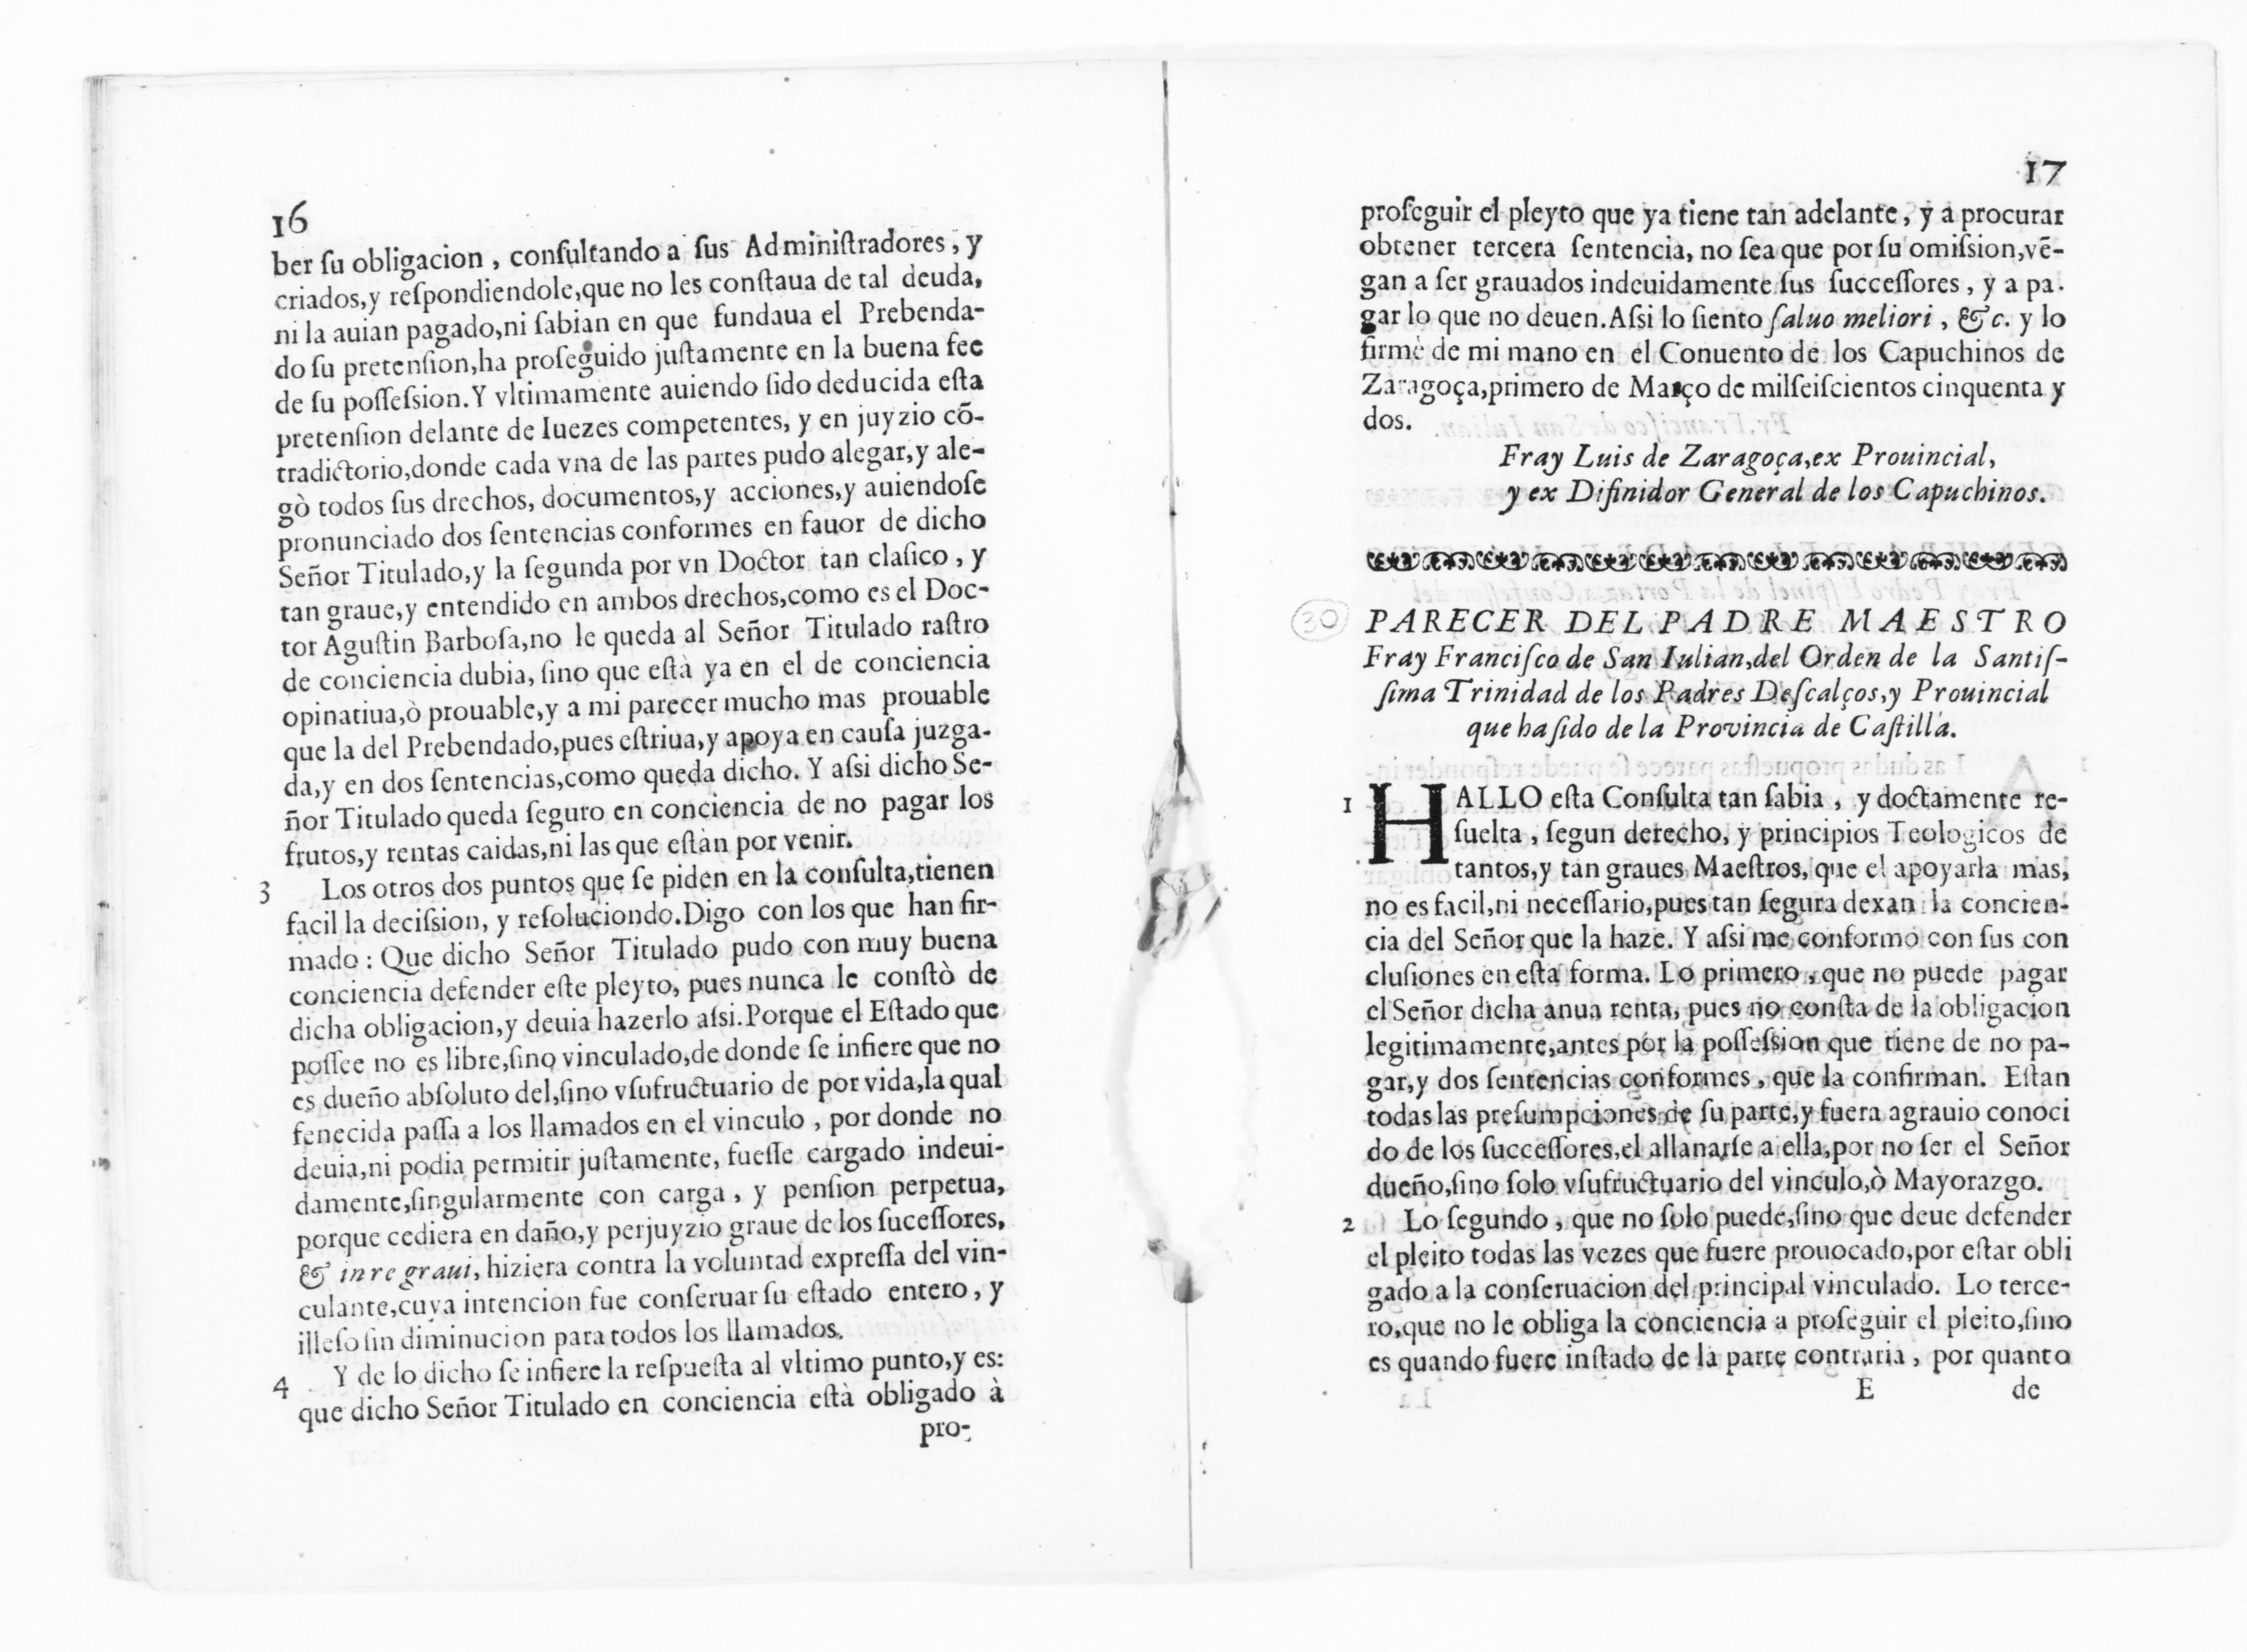 16
ber ſu obligacion , conſultando a ſus Adminiſtradores , y
criados,y reſpondiendole,que no les conſtaua de tal deuda,
ni la auian pagado,ni ſabian en que fundaua el Prebenda-
do ſu pretenſion,ha proſeguido juſtamente en la buena fee
de ſu poſſeſsion.Y vltimamente auiendo ſido deducida eſta
pretenſion delante de Iuezes competentes, y en juyzio cõ-
tradictorio,donde cada vna de las partes pudo alegar,y ale-
gò todos ſus drechos, documentos,y acciones,y auiendoſe
pronunciado dos ſentencias conformes en fauor de dicho
Señor Titulado,y la ſegunda por vn Doctor tan claſico , y
tan graue,y entendido en ambos drechos,como es el Doc-
tor Aguſtin Barboſa,no le queda al Señor Titulado raſtro
de conciencia dubia, ſino que eſtà ya en el de conciencia
opinatiua,ò prouable,y a mi parecer mucho mas prouable
que la del Prebendado,pues eſtriua,y apoya en cauſa juzga-
da,y en dos ſentencias,como queda dicho. Y aſsi dicho Se-
ñor Titulado queda ſeguro en conciencia de no pagar los
frutos,y rentas caidas,ni las que eſtàn por venir.
3 Los otros dos puntos que ſe piden en la conſulta,tienen
facil la deciſsion, y reſoluciondo.Digo con los que han fir-
mado : Que dicho Señor Titulado pudo con muy buena
conciencia defender eſte pleyto, pues nunca le conſtò de
dicha obligacion,y deuia hazerlo aſsi.Porque el Eſtado que
poſſee no es libre,ſino vinculado,de donde ſe infiere que no
es dueño abſoluto del,ſino vſufructuario de por vida,la qual
fenecida paſſa a los llamados en el vinculo , por donde no
deuia,ni podia permitir juſtamente, fueſſe cargado indeui-
damente,ſingularmente con carga , y penſion perpetua,
porque cediera en daño,y perjuyzio graue de los ſuceſſores,
& in re graui, hiziera contra la voluntad expreſſa del vin-
culante,cuya intencion fue conſeruar ſu eſtado entero , y
illeſo ſin diminucion para todos los llamados.
4 Y de lo dicho ſe infiere la reſpueſta al vltimo punto,y es:
que dicho Señor Titulado en conciencia eſtà obligado à
pro-
17
proſeguir el pleyto que ya tiene tan adelante , y a procurar
obtener tercera ſentencia, no ſea que por ſu omiſsion,vẽ-
gan a ſer grauados indeuidamente ſus ſucceſſores , y a pa.
gar lo que no deuen.Aſsi lo ſiento ſaluo meliori , &c. y lo
firmè de mi mano en el Conuento de los Capuchinos de
Zaragoça,primero de Março de milſeiſcientos cinquenta y
dos.
Fray Luis de Zaragoça,ex Prouincial,
y ex Difinidor General de los Capuchinos.
30
PARECER DEL PADRE MAESTRO
Fray Franciſco de San Iulian,del Orden de la Santiſ-
ſima Trinidad de los Padres Deſcalços,y Prouincial
que ha ſido de la Provincia de Caſtilla.
1 HALLO eſta Conſulta tan ſabia , y doctamente re-
ſuelta , ſegun derecho, y principios Teologicos de
tantos,y tan graues Maeſtros, que el apoyarla mas,
no es facil,ni neceſſario,pues tan ſegura dexan la concien-
cia del Señor que la haze. Y aſsi me conformo con ſus con
cluſiones en eſta forma. Lo primero , que no puede pagar
el Señor dicha anua renta, pues no conſta de la obligacion
legitimamente,antes por la poſſeſsion que tiene de no pa-
gar,y dos ſentencias conformes , que la confirman. Eſtan
todas las preſumpciones de ſu parte,y fuera agrauio conoci
do de los ſucceſſores,el allanarſe a ella,por no ſer el Señor
dueño,ſino ſolo vſufructuario del vinculo,ò Mayorazgo.
2 Lo ſegundo , que no ſolo puede,ſino que deue defender
el pleito todas las vezes que fuere prouocado,por eſtar obli
gado a la conſeruacion del principal vinculado. Lo terce-
ro,que no le obliga la conciencia a proſeguir el pleito,ſino
es quando fuere inſtado de la parte contraria , por quanto
E de